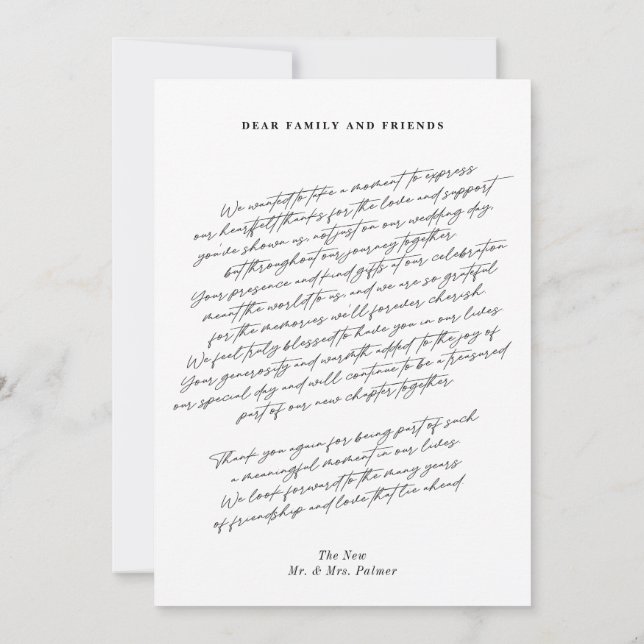 DEAR FAMILY AND FRIENDS
We wanted to take a moment to express
our heartfelt thanks for the love and support
you've shown us, not just on our wedding day,
but throughout our journey together.
Your presence and kind gifts at our celebration
meant the world to us, and we are so grateful
for the memories we'll forever cherish.
We feel truly blessed to have you in our lives
Your generosity and warmth added to the joy of
our special day and will continue to be a treasured
part of our new chapter together
Thank you again for being part of such
a meaningful moment in our lives.
We look forward to the many years
of friendship and love that lie ahead.
The New
Mr. & Mrs. Palmer